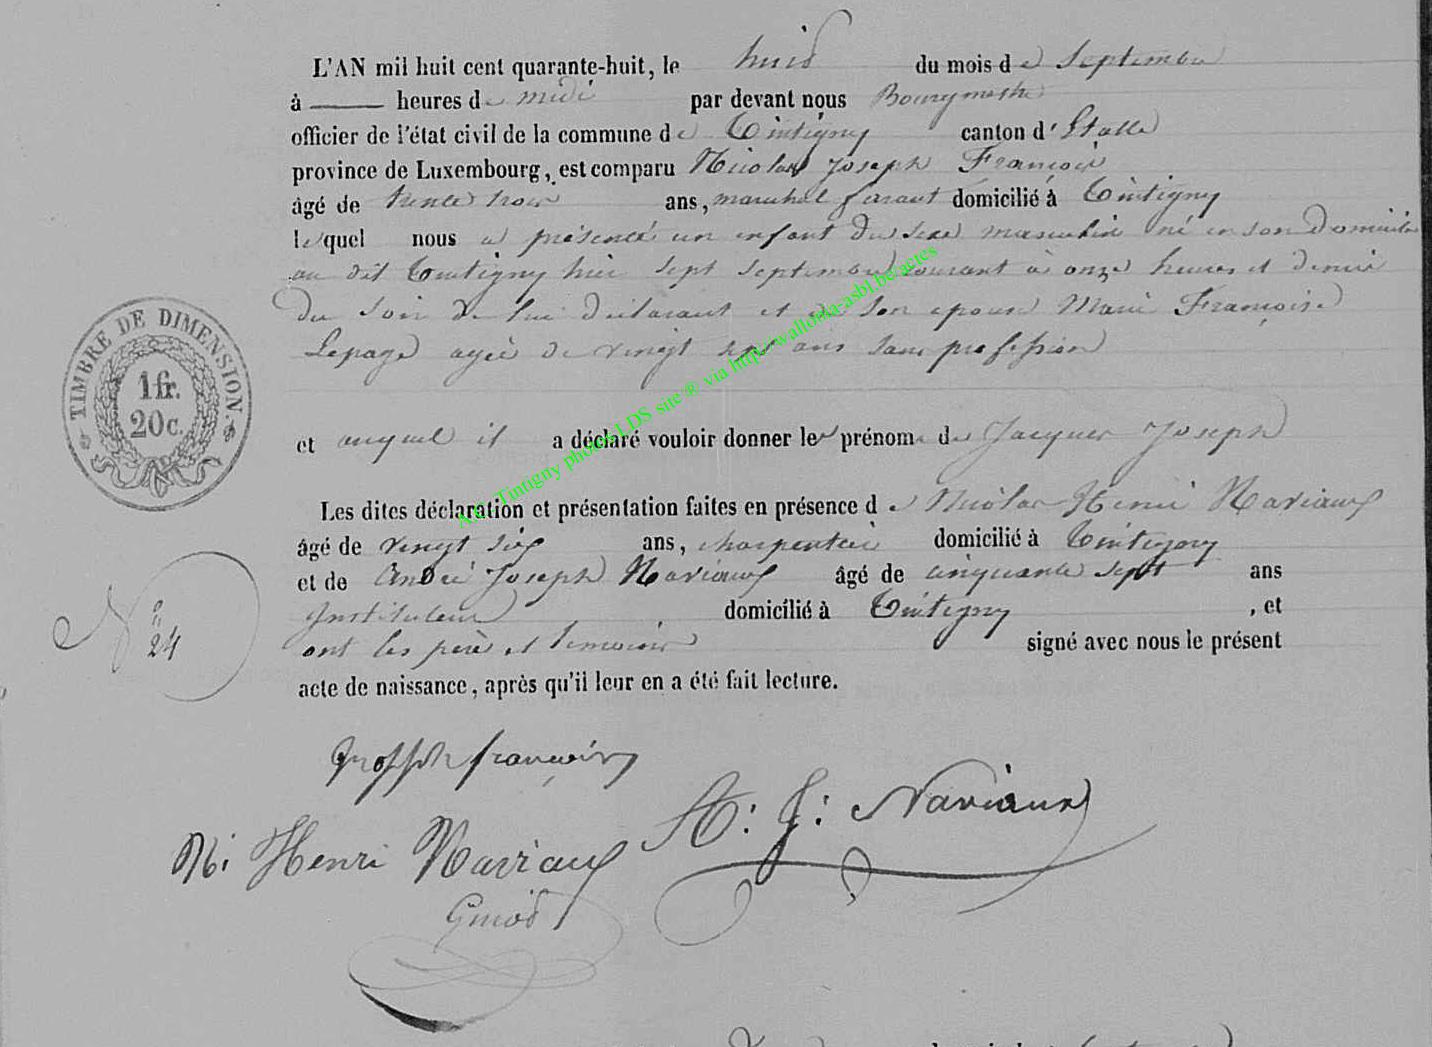 L'AN mil huit cent quarante-huit, le huit du mois de Septembre
à ——— heures de midi par devant nous Bourgmestre
officier de l'état civil de la commune de Tintigny canton d'Etalle
province de Luxembourg, est comparu Nicolas Joseph François
âgé de trente trois ans, marechal ferant domicilié à Tintigny
lequel nous a présenté un enfant du sexe masculin né en son domicile
au dit Tintigny hier sept septembre courant à onze heures et demie
du soir de lui declarant et de son epouse Marie Françoise
Lepage agée de vingt sept ans sans profession
TIMBRE DE DIMENSION.
1fr.
20c.
et auquel il a déclaré vouloir donner les prénoms de Jacques Joseph
Les dites déclaration et présentation faites en présence de Nicolas Henri Naviaux
âgé de vingt six ans, charpentier domicilié à Tintigny
et de André Joseph Naviaux âgé de cinquante sept ans
Instituteur domicilié à Tintigny, et
ont les père et temoins signé avec nous le présent
acte de naissance, après qu'il leur en a été fait lecture.
No 24
A.C. Tintigny photos LDS site ® via http://wallonia-asbl.be/actes
Josseph françois
A: J: Naviaux
Ni Henri Naviaux